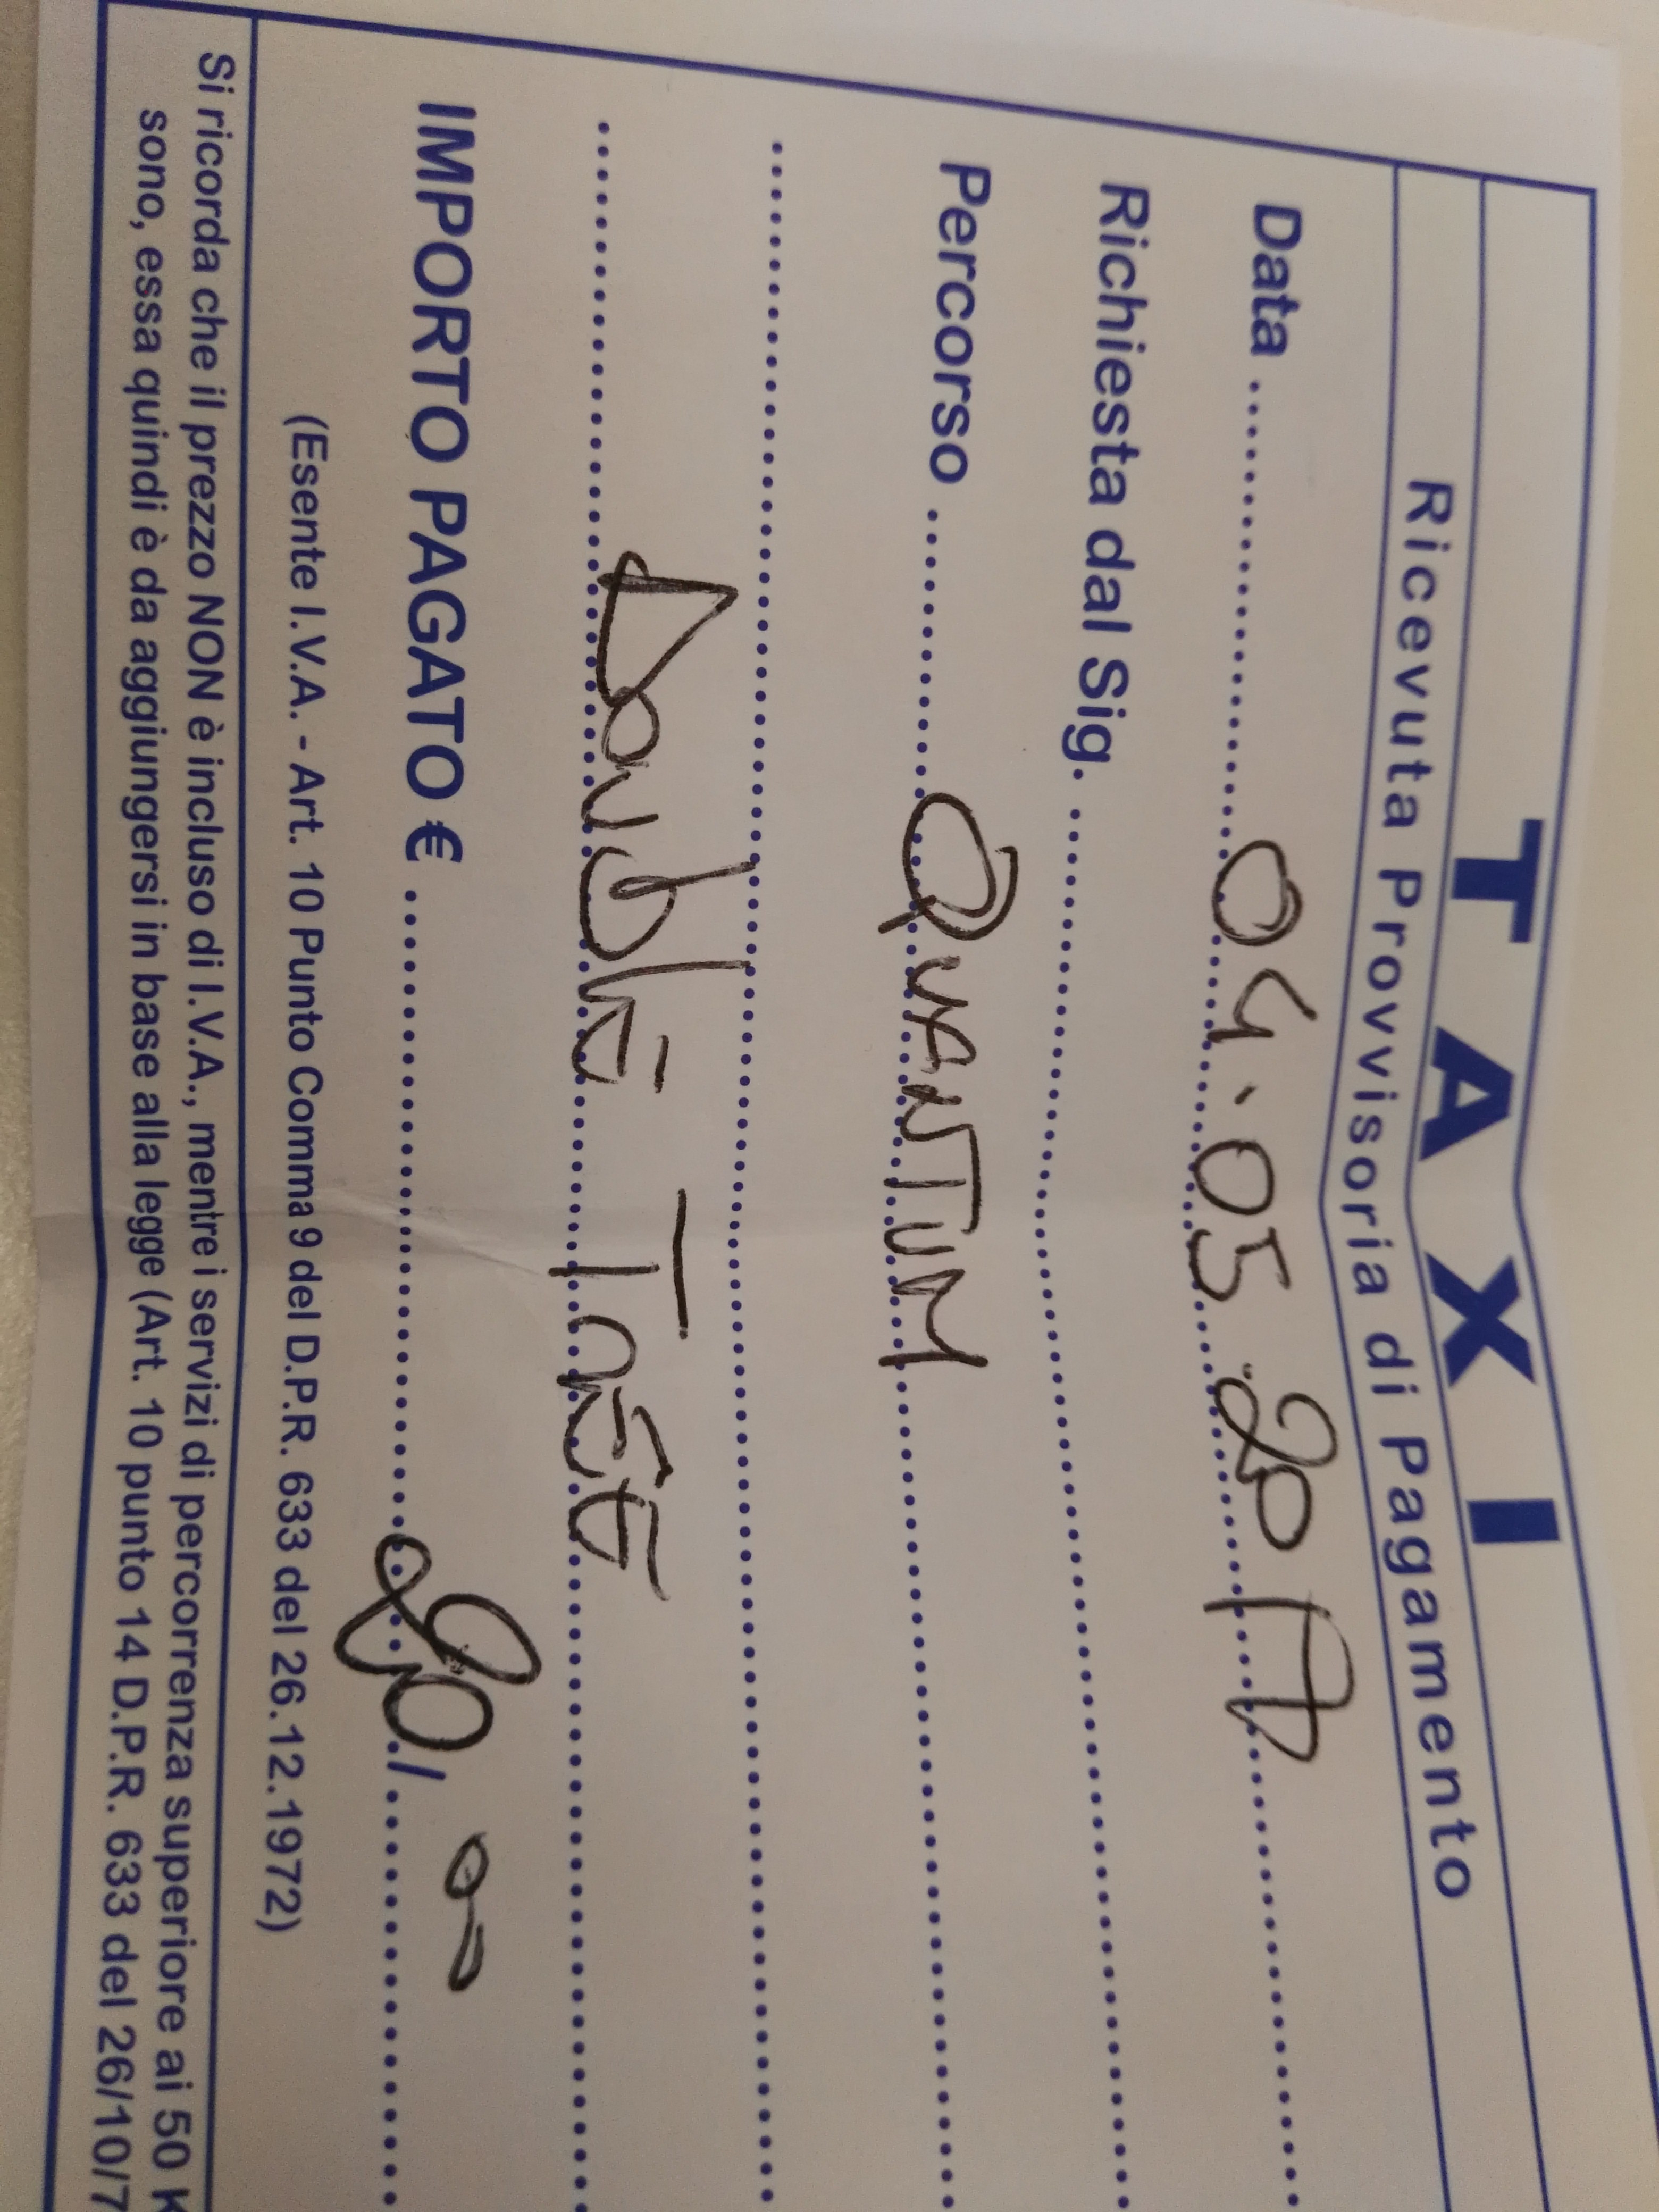 TAXI
Ricevuta Provvisoria di Pagamento
Data ........ 04.05.2017 ........
Richiesta dal Sig. ........
Percorso ........ QUANTUM ........
........
........ Double Tree ........
IMPORTO PAGATO € ........ 80/00 ........
(Esente I.V.A. - Art. 10 Punto Comma 9 del D.P.R. 633 del 26.12.1972)
Si ricorda che il prezzo NON è incluso di I.V.A., mentre i servizi di percorrenza superiore ai 50 K
sono, essa quindi è da aggiungersi in base alla legge (Art. 10 punto 14 D.P.R. 633 del 26/10/7